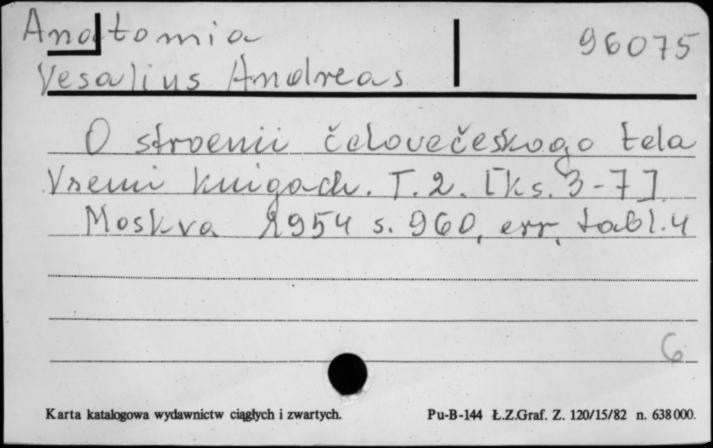 Anatomia 96075
Vesalius Andreas
O stroenii čelovečeskogo tela
V semi knigach. T. 2. [ks. 3-7]
Moskva 1954 s. 960, err, tabl. 4
6
Karta katalogowa wydawnictw ciągłych i zwartych. Pu-B-144 Ł.Z.Graf. Z. 120/15/82 n. 638000.